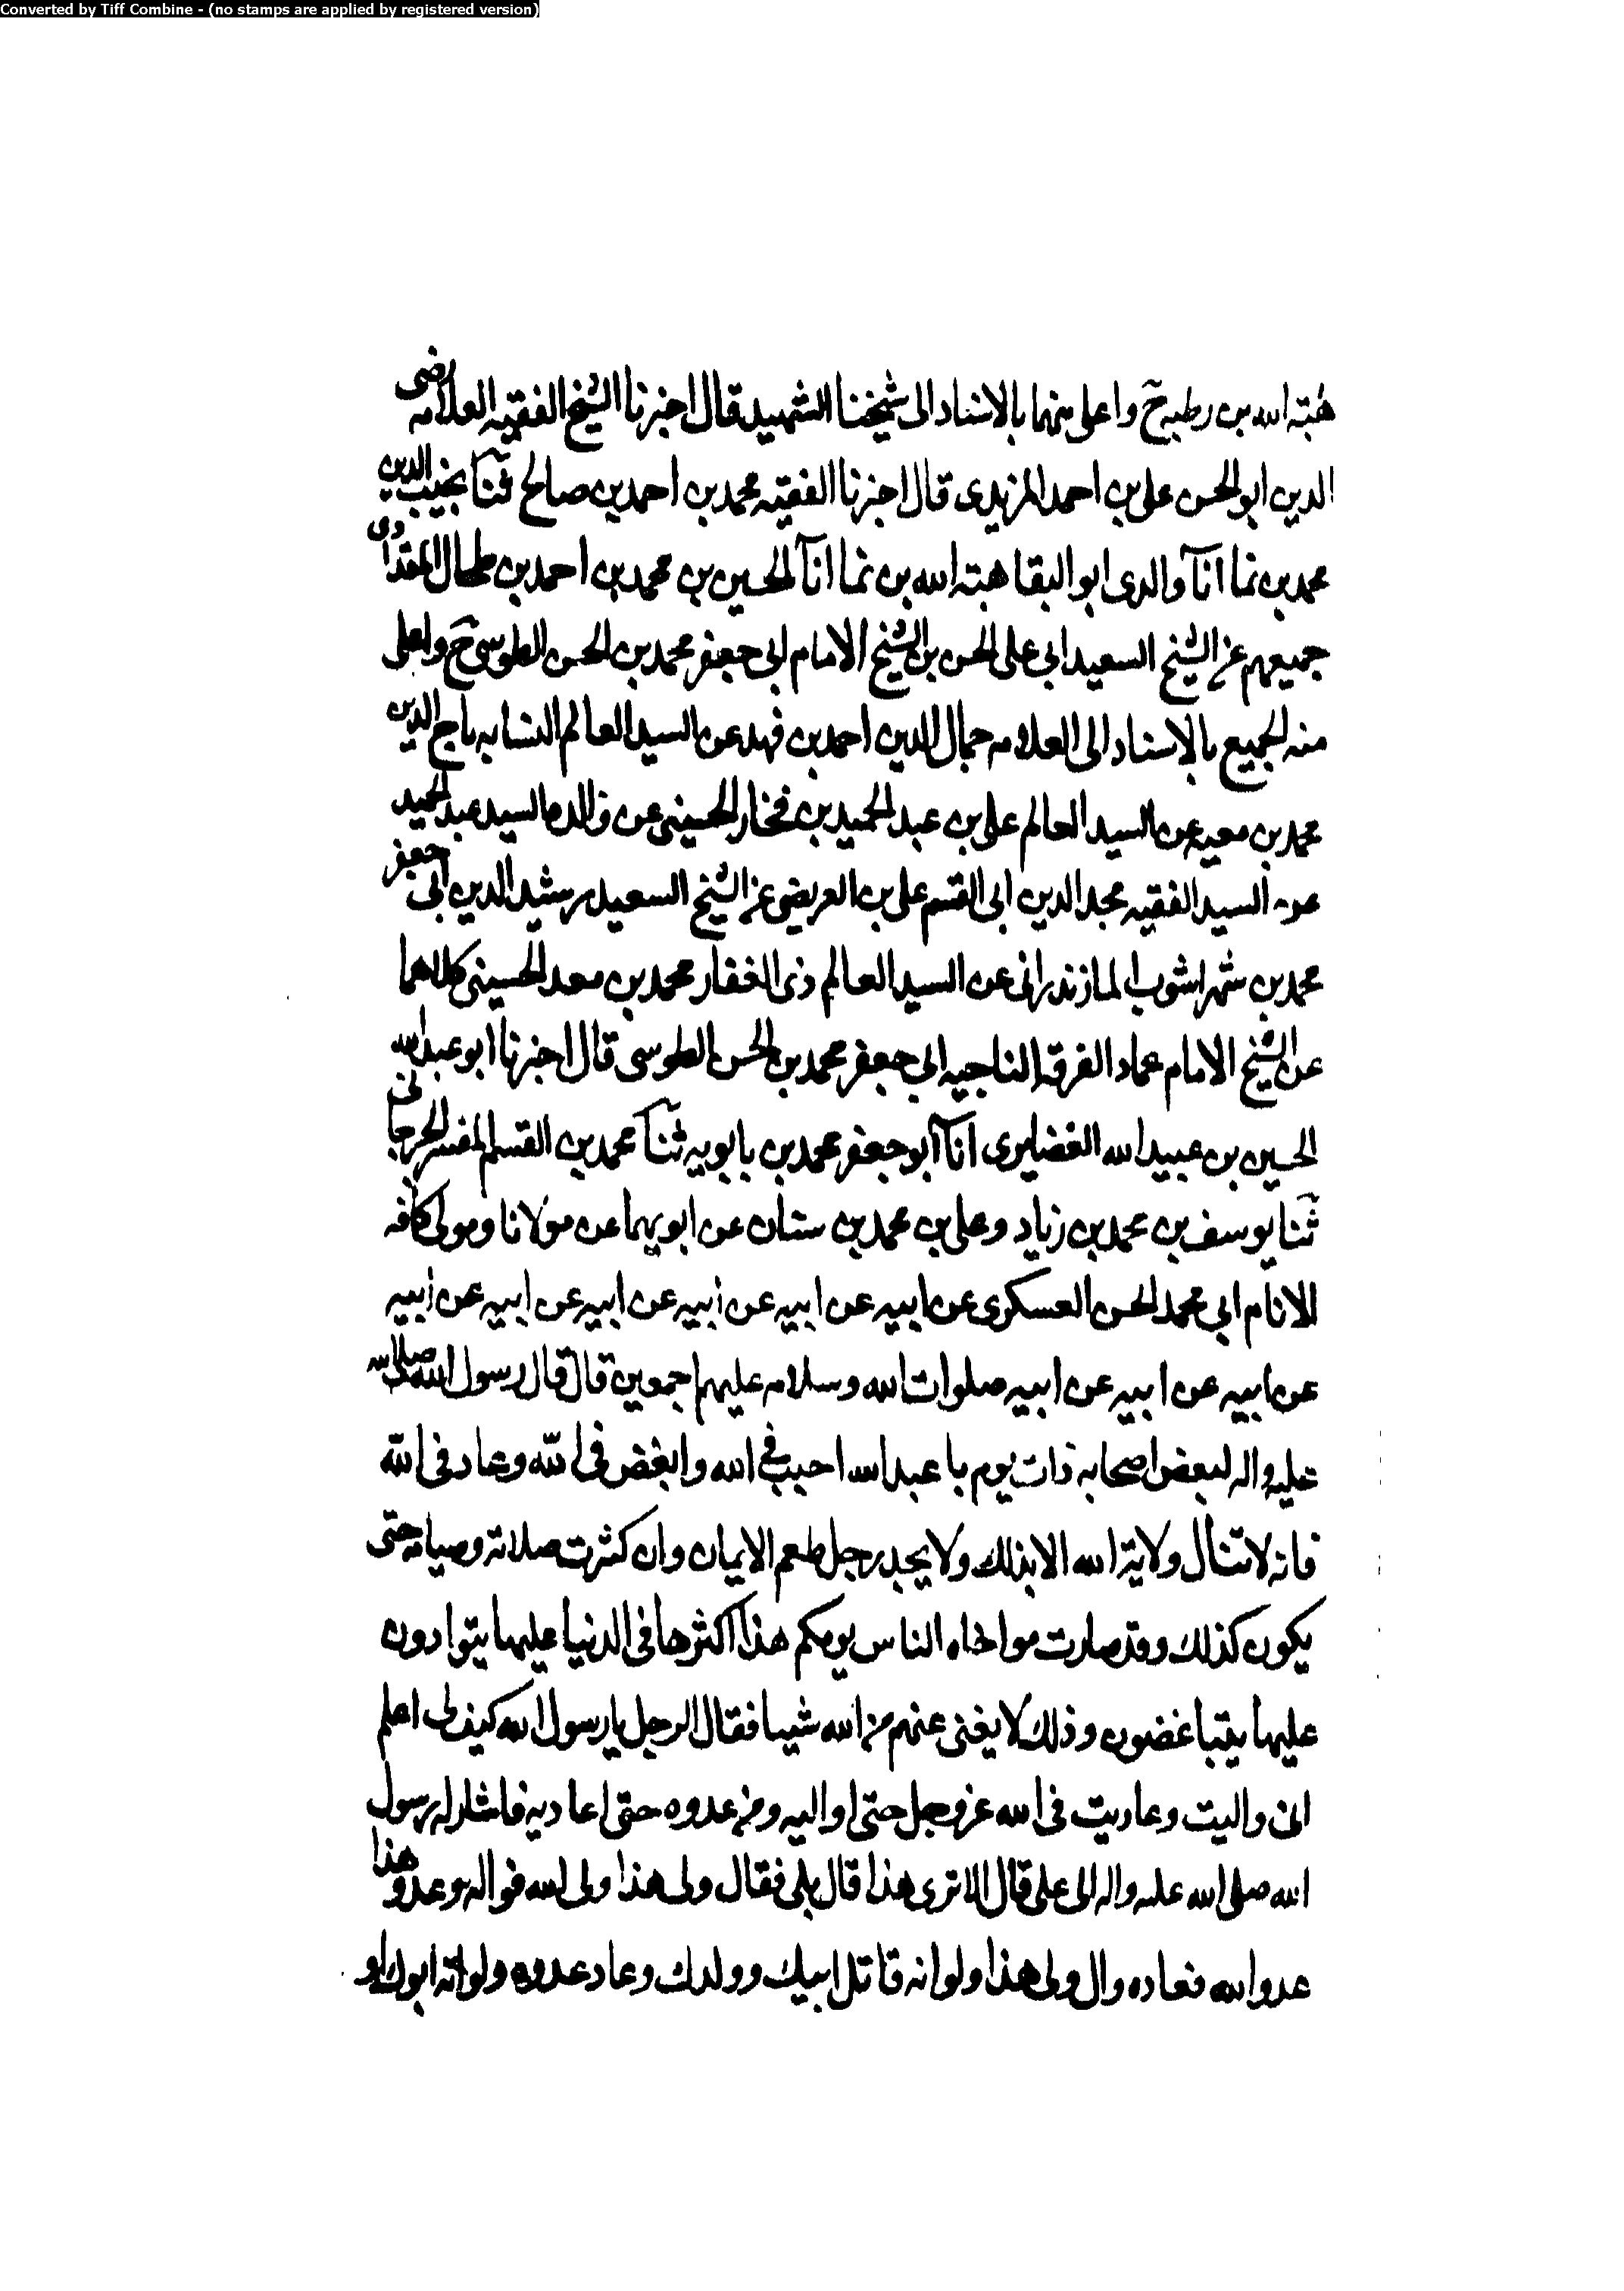 Converted by Tiff Combine - (no stamps are applied by registered version)
هبته الله بن رطبه ح واعلى منهما بالاسناد الى شيخنا الشهيد قال اخبرنا الشيخ الفقيه العلامه رضى
الدين ابو الحسن على بن احمد المزيدى قال اخبرنا الفقيه محمد بن احمد بن صالح ثنا نجيب الدين
محمد بن نما انآ والدى ابو البقا هبته الله بن نما انآ الحسين بن محمد بن احمد بن طحال المقدادى
جميعهم عن الشيخ السعيد ابى على الحسن بن الشيخ الامام ابى جعفر محمد بن الحسن الطوسى ح واعلى
منه الجميع بالاسناد الى العلامه جمال الدين احمد بن فهد عن السيد العالم النسابه تاج الدين
محمد بن معيه عن السيد العالم على بن عبد الحميد بن فخار الحسينى عن والده السيد عبد الحميد
عن السيد الفقيه مجد الدين ابى القسم على بن العريضى عن الشيخ السعيد رشيد الدين ابى جعفر
محمد بن شهراشوب المازندرانى عن السيد العالم ذى الفقار محمد بن معد الحسينى كلاهما
عن الشيخ الامام عماد الفرقه الناجيه ابى جعفر محمد بن الحسن الطوسى قال اخبرنا ابو عبد الله
الحسين بن عبيد الله الغضايرى انآ ابو جعفر محمد بن بابويه ثنآ محمد بن القسم المفسر الجرجانى
ثنا يوسف بن محمد بن زياد وعلى بن محمد بن ستان عن ابويهما عن مولانا ومولى كافه
الانام ابى محمد الحسن العسكرى عن ابيه عن ابيه عن ابيه عن ابيه عن ابيه عن ابيه
عن ابيه عن ابيه عن ابيه صلوات الله وسلامه عليهم اجمعين قال قال رسول الله صلى الله
عليه واله لبعض اصحابه ذات يوم يا عبد الله احبب فى الله وابغض فى الله وعاد فى الله
فانه لا تنال ولاية الله الا بذلك ولا يجد رجل طعم الايمان وان كثرت صلاته وصيامه حتى
يكون كذلك وقد صارت مواخاه الناس يومكم هذا اكثرها فى الدنيا عليها يتوادون
عليها يتباغضون وذلك لا يغنى عنهم من الله شيبا فقال الرجل يا رسول الله كيف لى اعلم
انى واليت وعاديت فى الله عز وجل حتى اواليه ومن عدوه حتى اعاديه فاشار له رسول
الله صلى الله عليه واله الى على قال الا ترى هذا قال بلى فقال ولى هذا ولى الله فواله وعدو هذا
عدو الله فعاده وال ولى هذا ولو انه قاتل ابيك وولدك وعاد عدوه ولو انه ابوك او